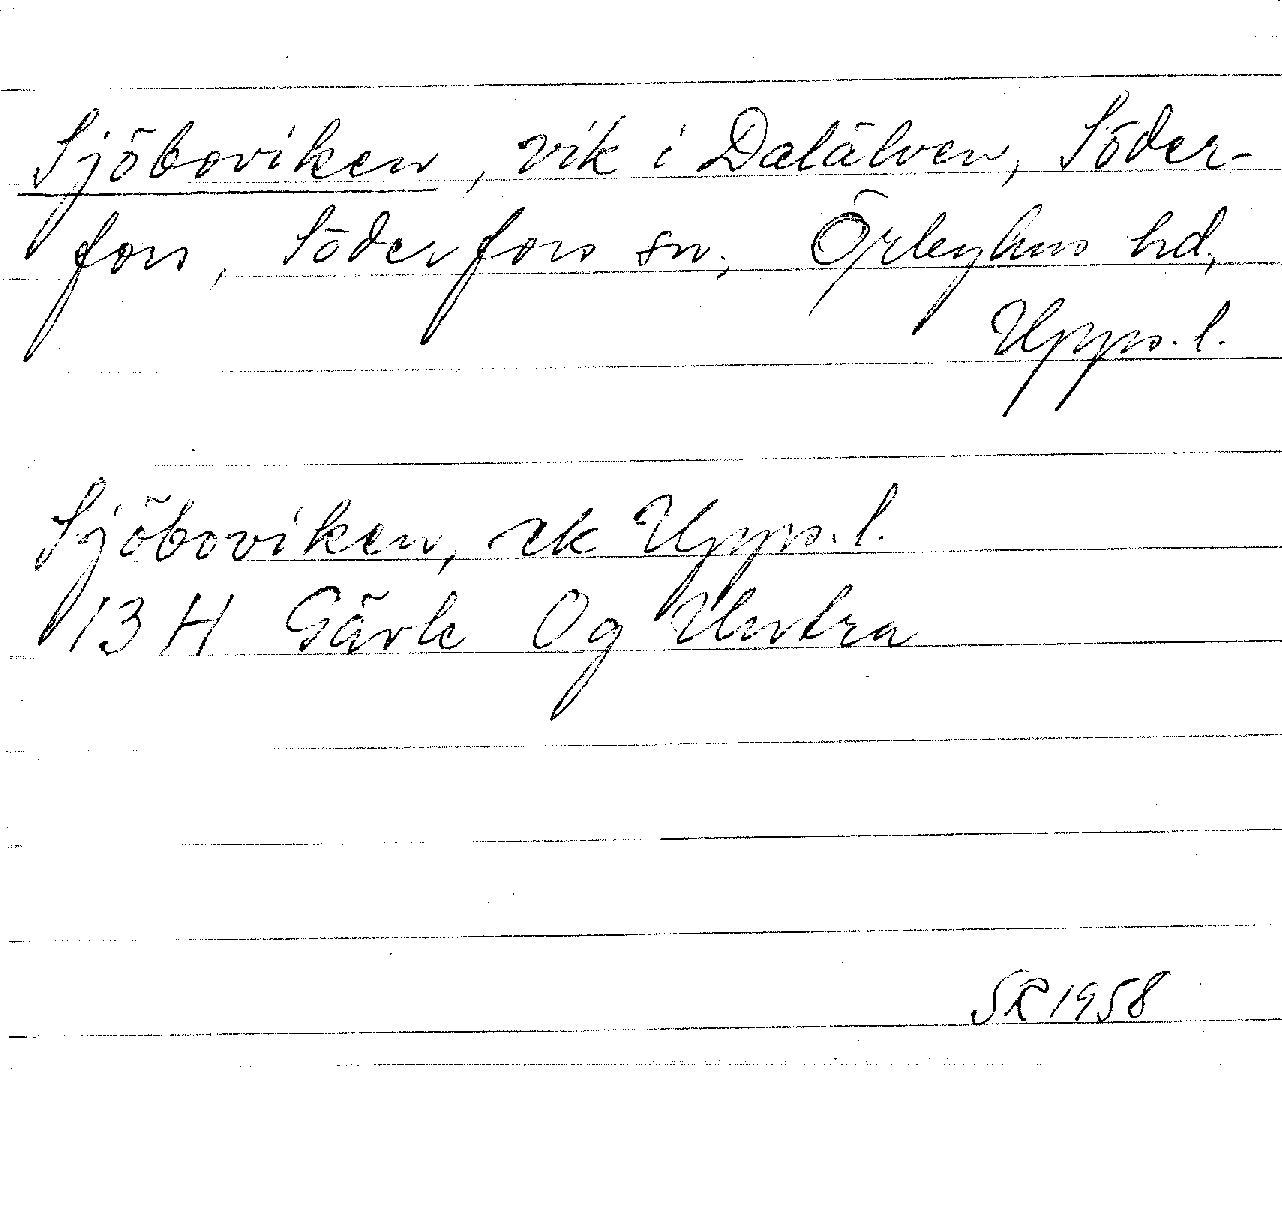 Sjöboviken, vik i Dalälven, Söder-
fors, Söderfors sn, Örbyhus hd,
Upps. l.
Sjöboviken, ek Upps. l.
13 H Gävle Og Untra
SR 1958